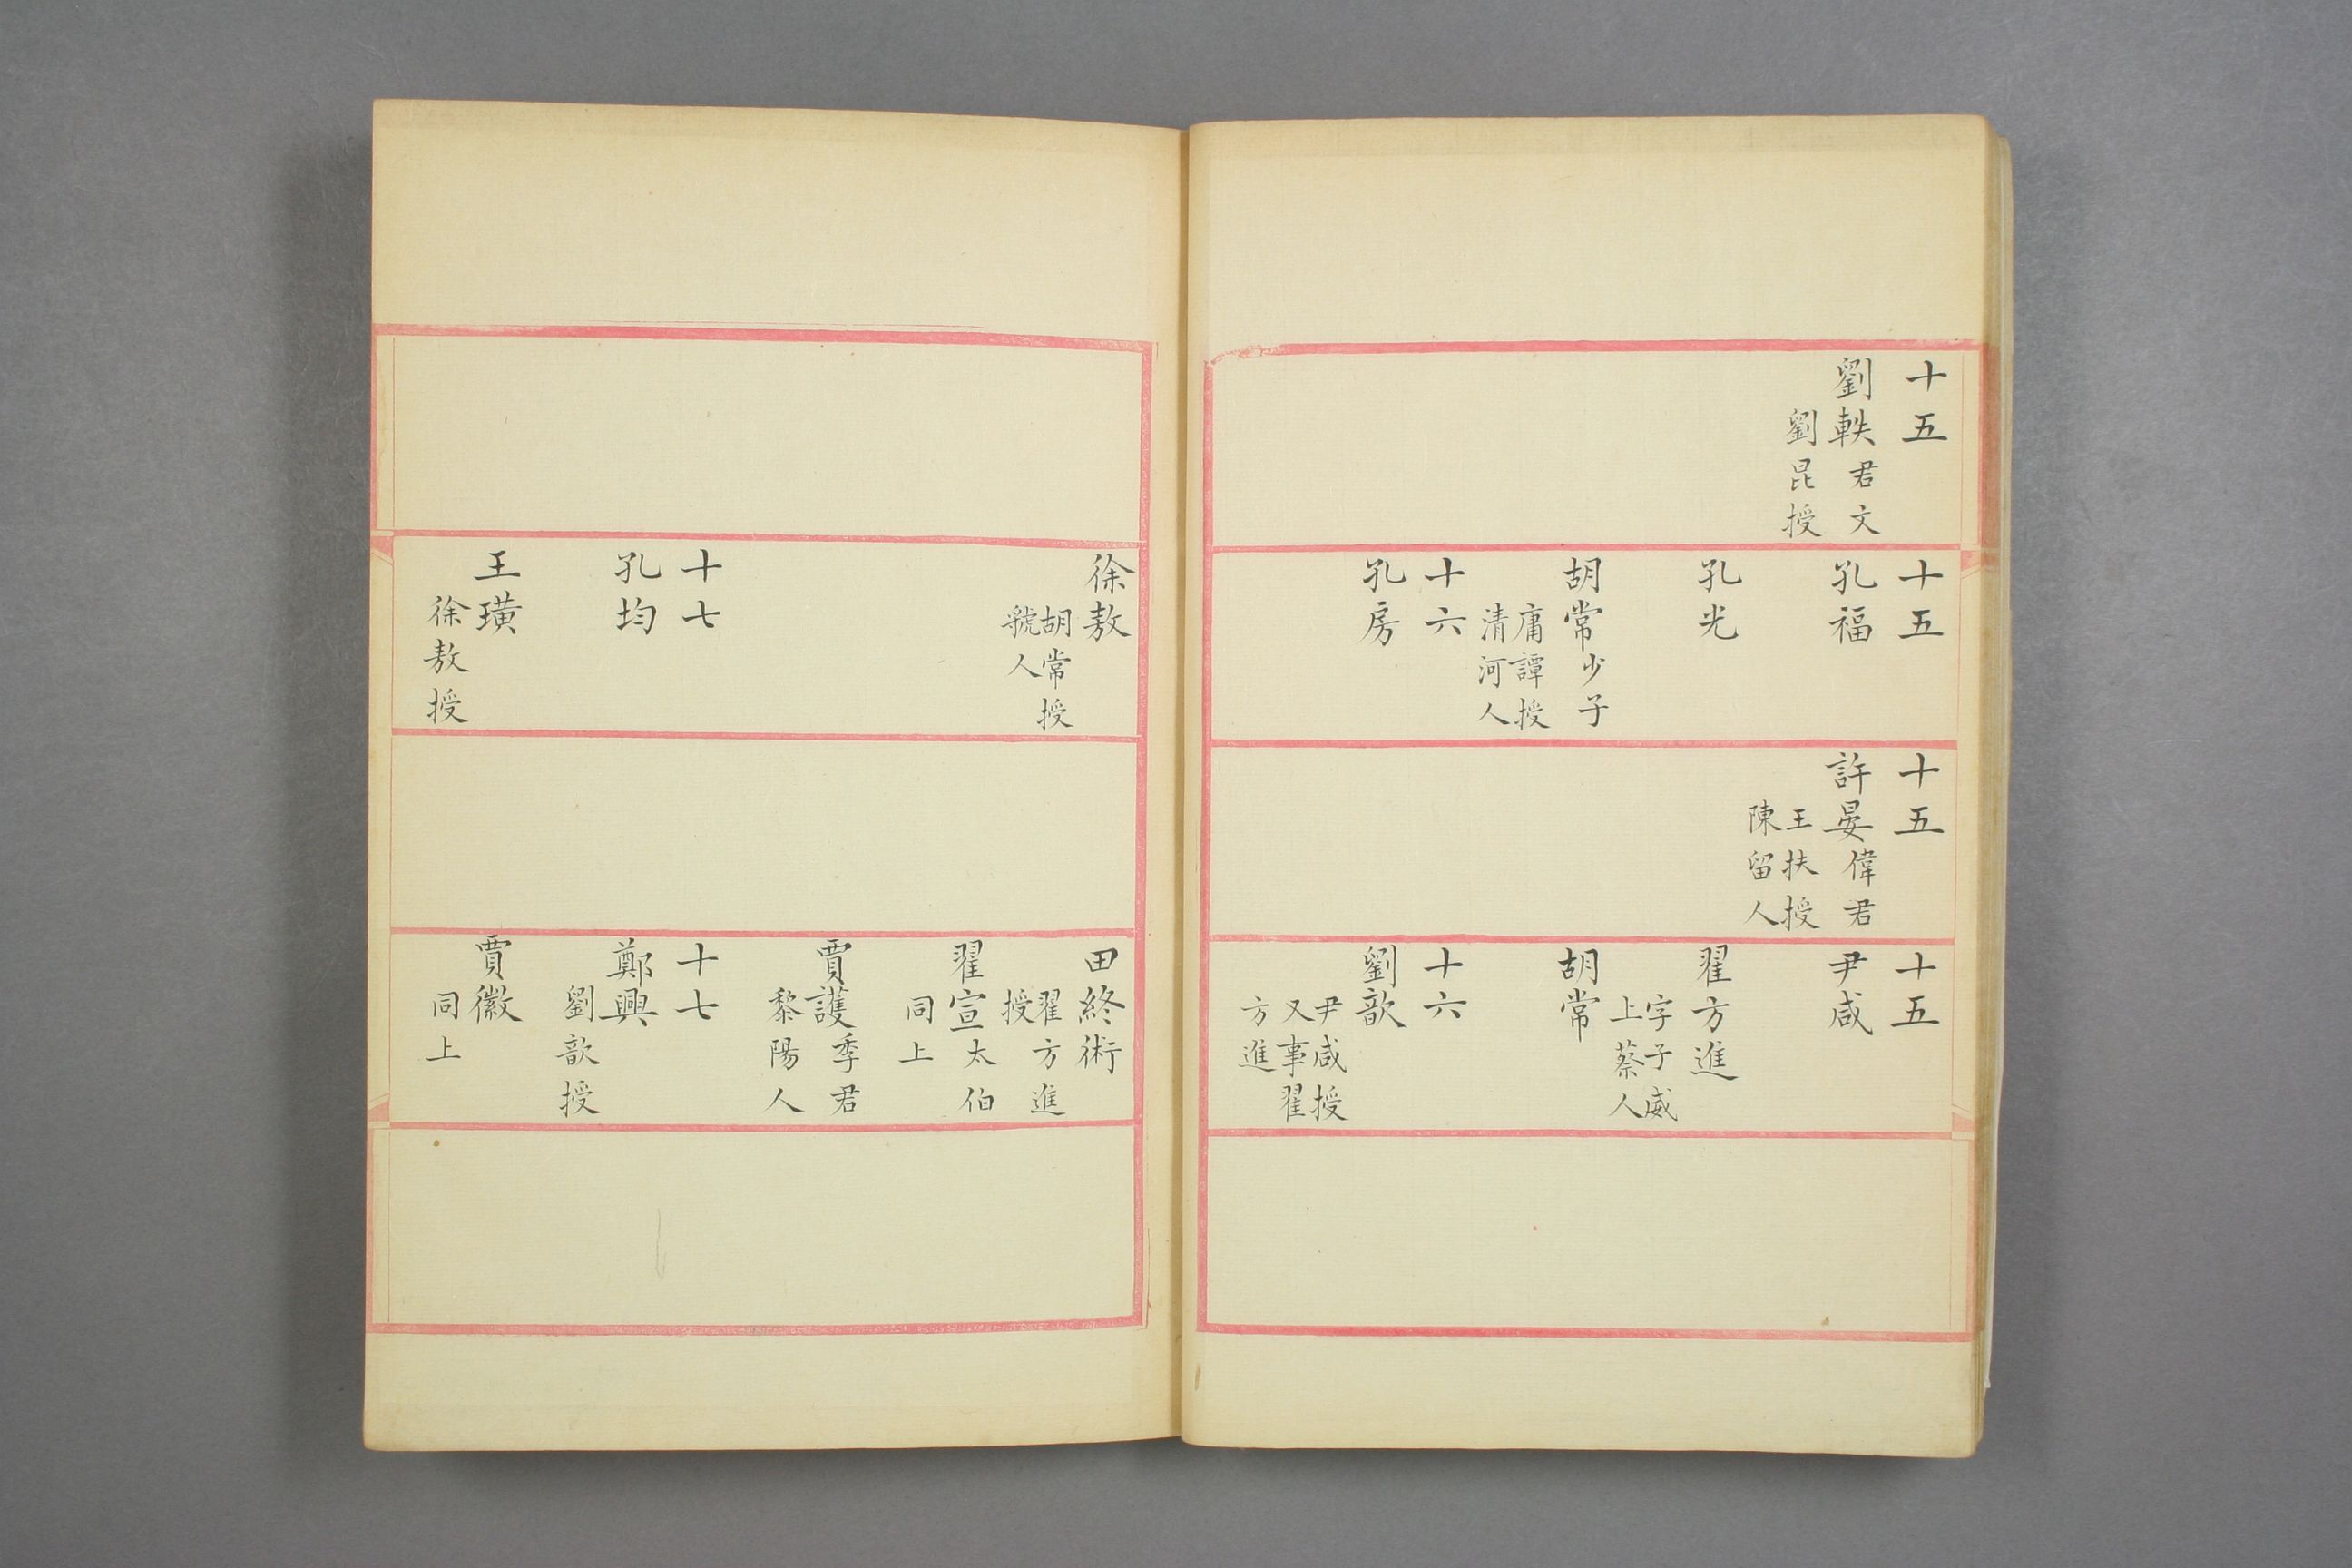 十五
劉軼君文
劉昆授
十五
孔福
孔光
胡常少子
庸譚授
清河人
十六
孔房
十五
許晏偉君
王扶授
陳留人
十五
尹咸
翟方進
字子威
上蔡人
胡常
十六
劉歆
尹咸授
又事翟
方進
徐敖
胡常授
虢人
十七
孔均
王璜
徐敖授
田終術
翟方進
授
翟宣太伯
同上
賈護季君
黎陽人
十七
鄭興
劉歆授
賈徽
同上